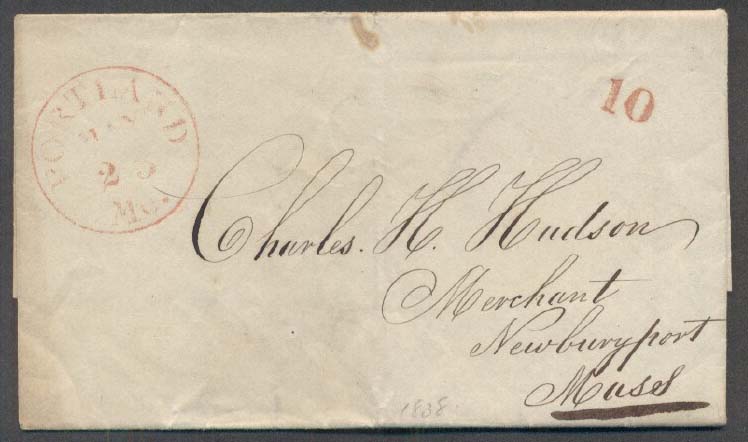 PORTLAND
MAY
Me.
10
Charles. H. Hudson
Merchant
Newburyport
Mass
1838